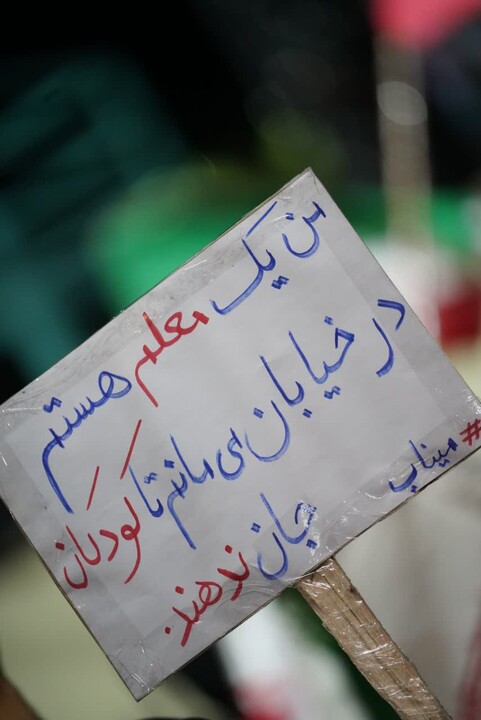 من یک معلم هستم
در خیابان می مانم تا کودکان
جان ندهند.
#میناب